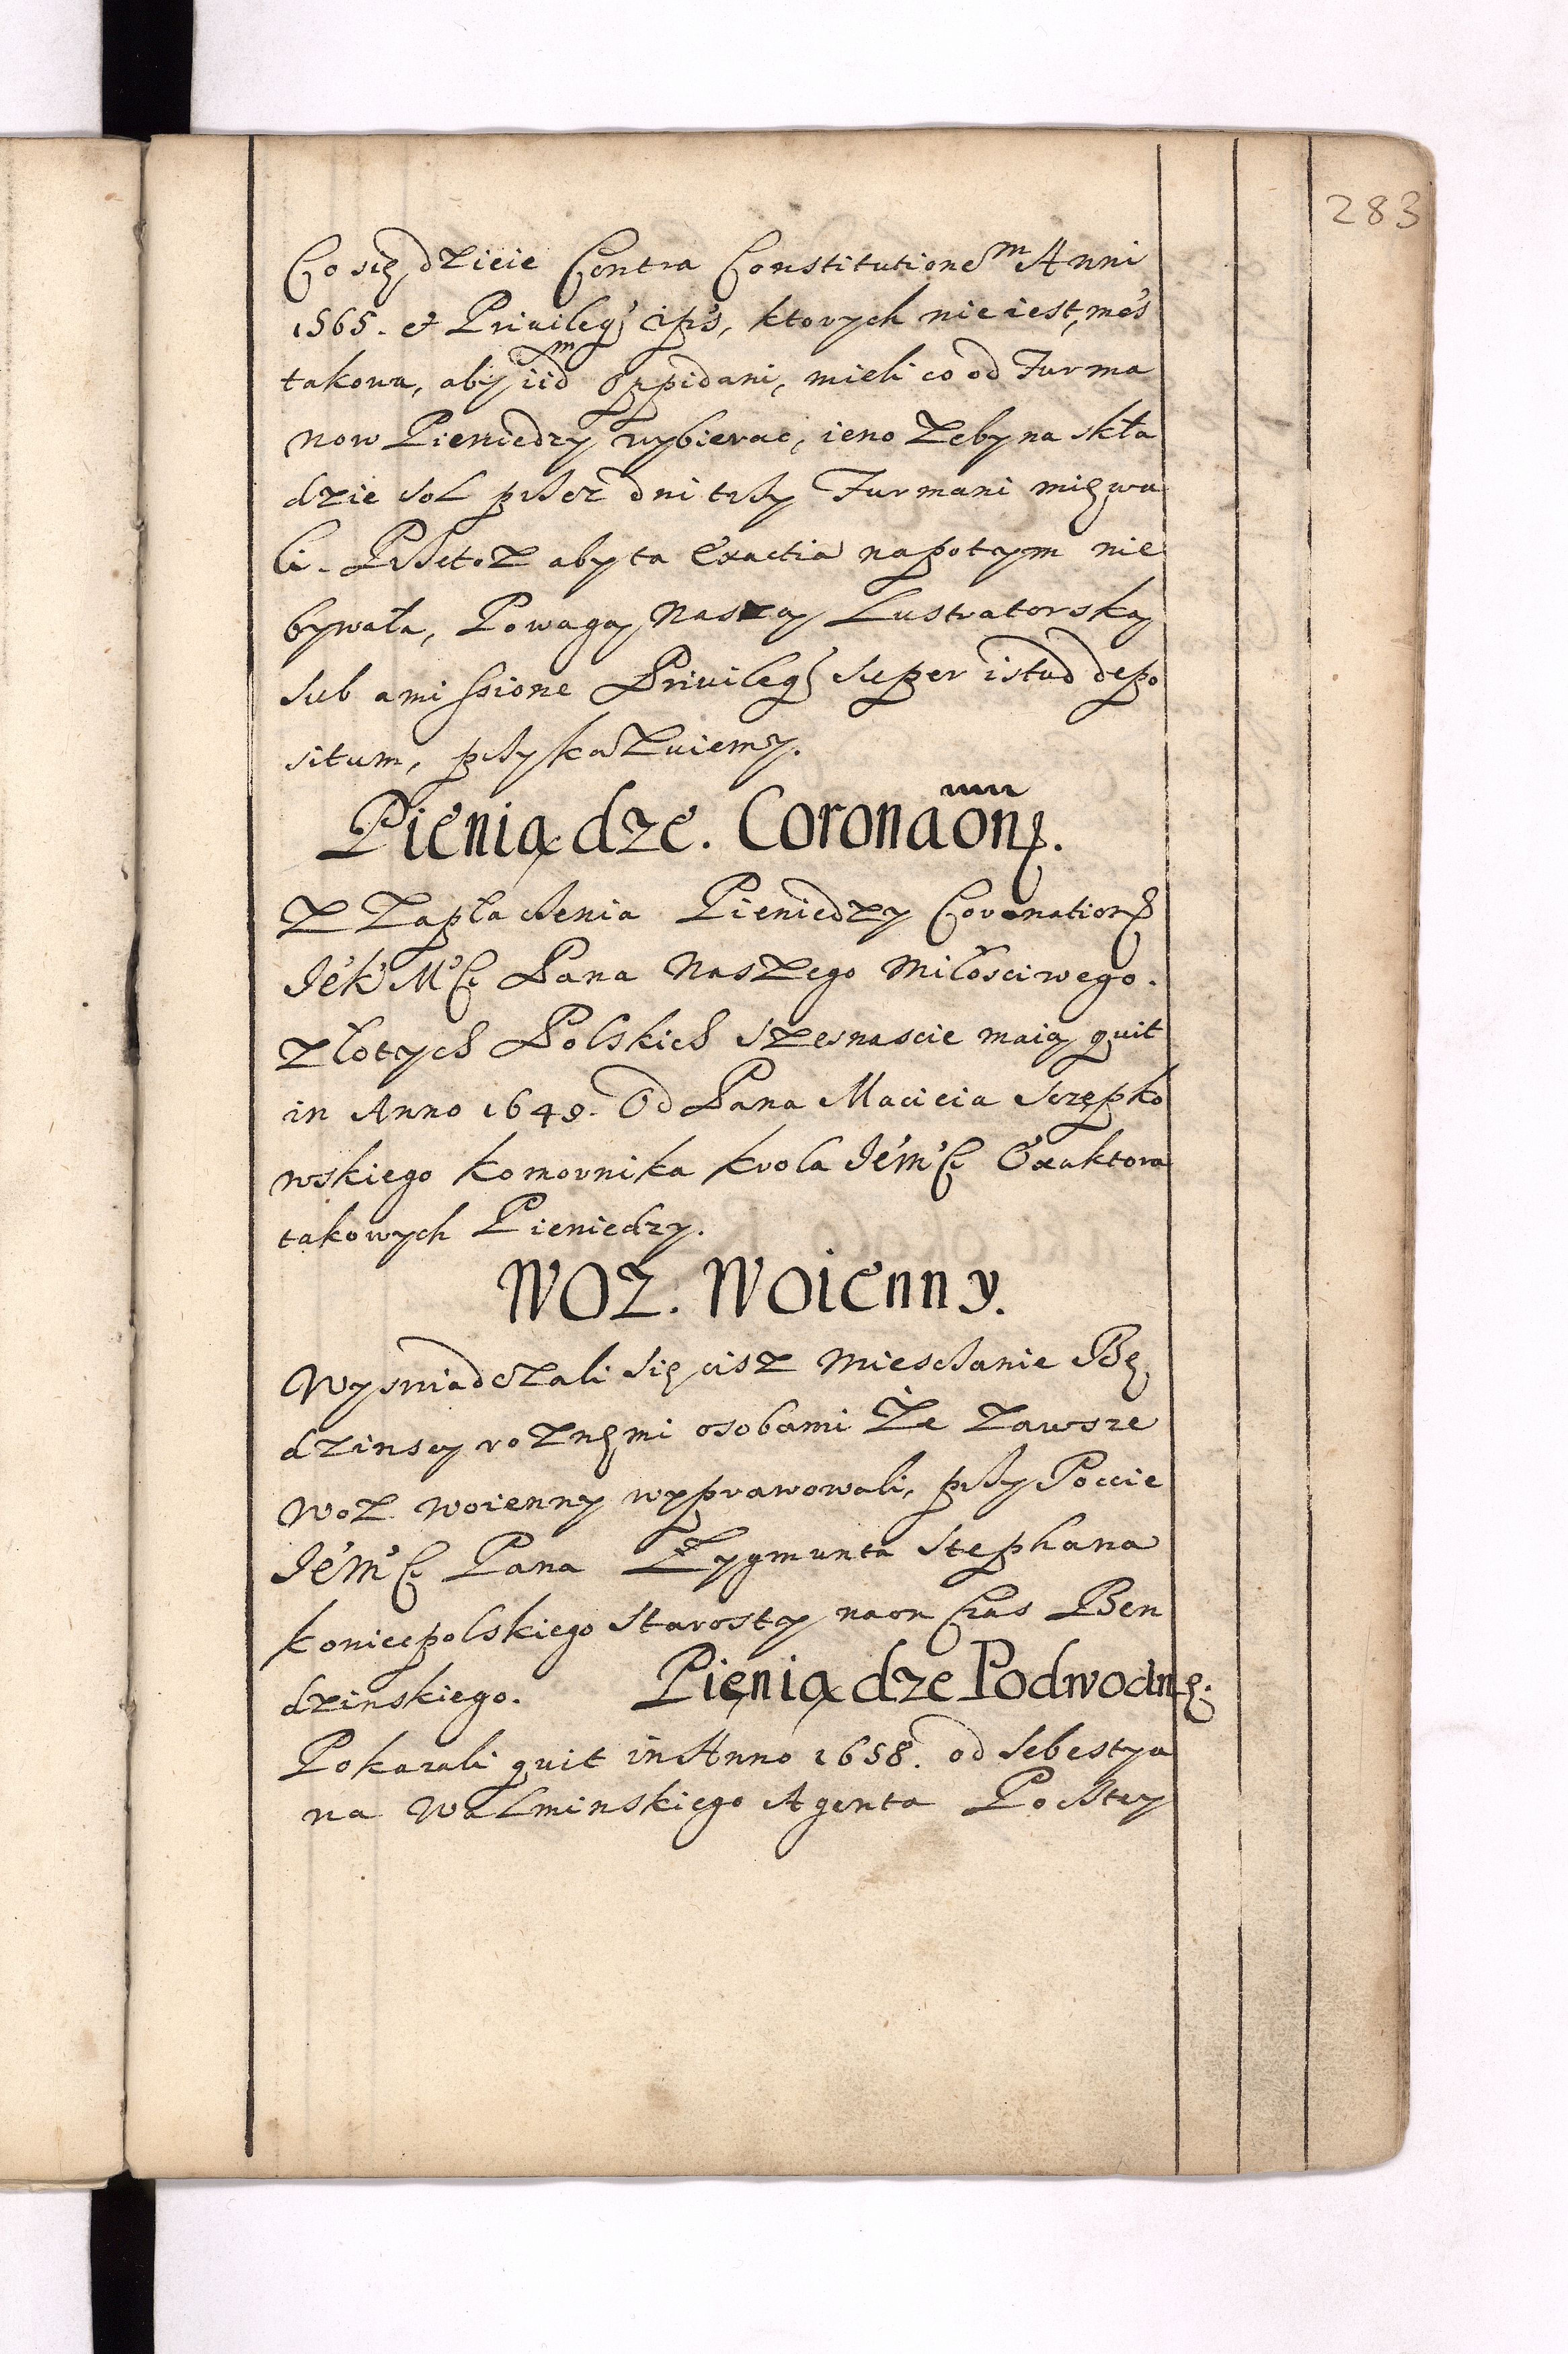 283
Co się dzieie Contra Constitutionem Anni
1565. et Privileg ips, ktorych nie iest mės
takowa, aby iidm Oppidani, mieli co od Furma
now Pieniedzy wybierac, ieno zeby na skła
dzie sol przez dni trzy Furmani mięwa
li. Przetoz aby ta Exactia napotym nie
bywała, Powagą Naszą Lustratorską
sub amissione Privileg super istud depo
situm, przykazuiemy.
Pieniądze. Coronaonę.
Z Zapłacenia Pieniedzy Coronationę
Jė k Mci Pana Naszego Miłosciwego.
Złotych Polskich szesnascie maią quit
in Anno 1649. Od Pana Macieia Sczepko
wskiego komornika krola Jė mci Exaktora
takowych Pieniedzy.
Woz. Woienny.
Wyswiadczali się cisz Miesczanie Bę
dzinscy roznęmi osobami Że zawsze
woz woienny wyprawowali, przy Poccie
Jė mci Pana Zygmunta Stephana
koniecpolskiego Starosty na on czas Ben
dzinskiego. Pieniądze Podwodnę.
Pokazali quit in Anno 1658. od Sebestya
na Walminskiego Agenta Poczty